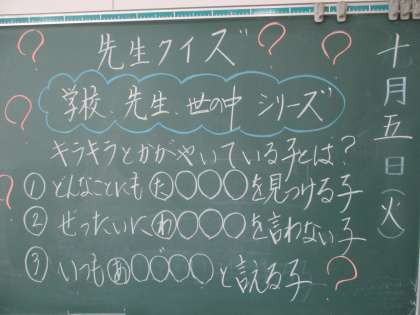 先生クイズ
学校、先生、世の中 シリーズ
キラキラとかがやいている子とは？
① どんなことにも た〇〇〇を見つける子
② ぜったいに わ〇〇〇を言わない子
③ いつも あ〇〇〇〇と言える子
十月五日（火）
？
？
？
？
？
？